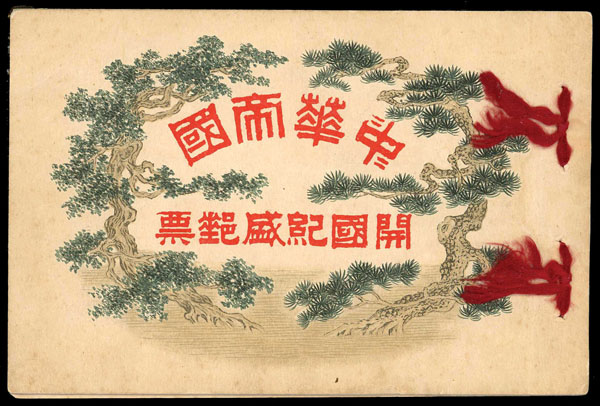 中華帝國
開國紀盛郵票